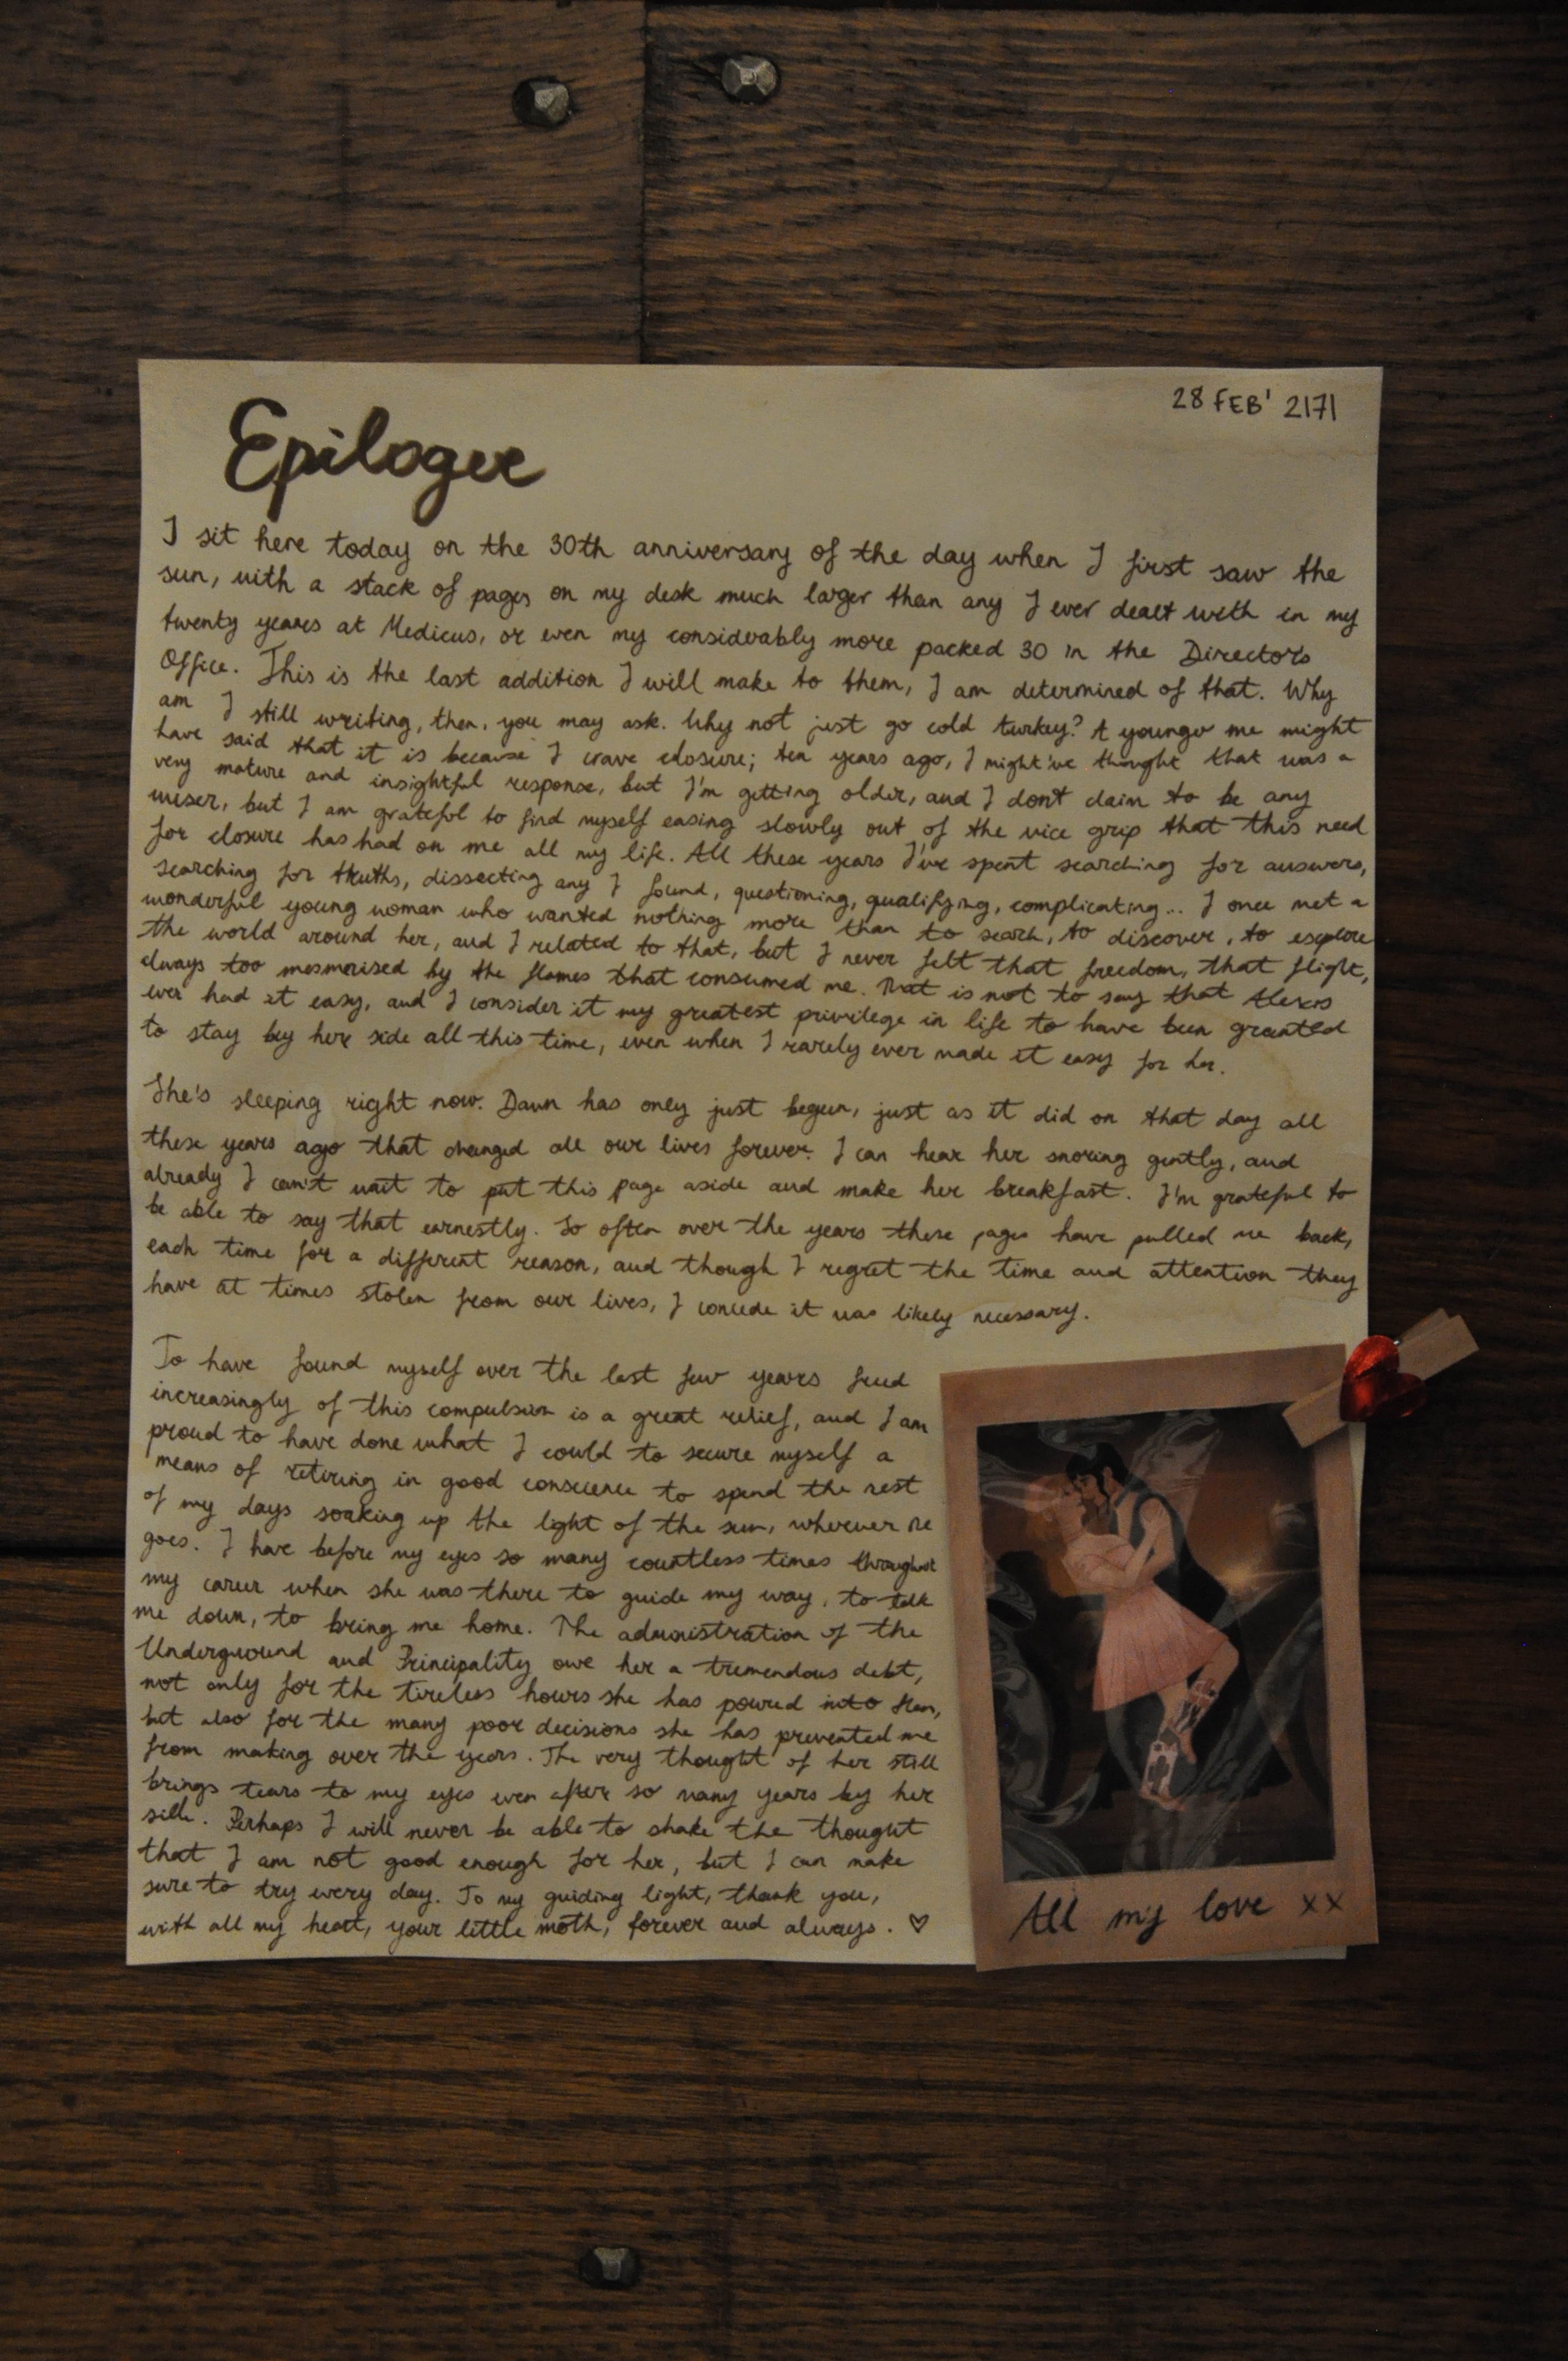 28 FEB' 2171
Epilogue
I sit here today on the 30th anniversary of the day when I first saw the
sun, with a stack of pages on my desk much larger than any I ever dealt with in my
twenty years at Medicus, or even my considerably more packed 30 in the Director's
Office. This is the last addition I will make to them, I am determined of that. Why
am I still writing, then, you may ask. Why not just go cold turkey? A younger me might
have said that it is because I crave closure; ten years ago, I might've thought that was a
very mature and insightful response, but I'm getting older, and I don't claim to be any
wiser, but I am grateful to find myself easing slowly out of the vice grip that this need
for closure has had on me all my life. All these years I've spent searching for answers,
searching for truths, dissecting any I found, questioning, qualifying, complicating... I once met a
wonderful young woman who wanted nothing more than to search, to discover, to explore
the world around her, and I related to that, but I never felt that freedom, that flight,
always too mesmerised by the flames that consumed me. That is not to say that Alexis
ever had it easy, and I consider it my greatest privilege in life to have been granted
to stay by her side all this time, even when I rarely ever made it easy for her.
She's sleeping right now. Dawn has only just begun, just as it did on that day all
these years ago that changed all our lives forever. I can hear her snoring gently, and
already I can't wait to put this page aside and make her breakfast. I'm grateful to
be able to say that earnestly. So often over the years these pages have pulled me back,
each time for a different reason, and though I regret the time and attention they
have at times stolen from our lives, I concede it was likely necessary.
To have found myself over the last few years freed
increasingly of this compulsion is a great relief, and I am
proud to have done what I could to secure myself a
means of retiring in good conscience to spend the rest
of my days soaking up the light of the sun, wherever she
goes. I have before my eyes so many countless times throughout
my career when she was there to guide my way, to talk
me down, to bring me home. The administration of the
Underground and Principality owe her a tremendous debt,
not only for the tireless hours she has poured into them,
but also for the many poor decisions she has prevented me
from making over the years. The very thought of her still
brings tears to my eyes even after so many years by her
side. Perhaps I will never be able to shake the thought
that I am not good enough for her, but I can make
sure to try every day. To my guiding light, thank you,
with all my heart, your little moth, forever and always. ♡
All my love xx